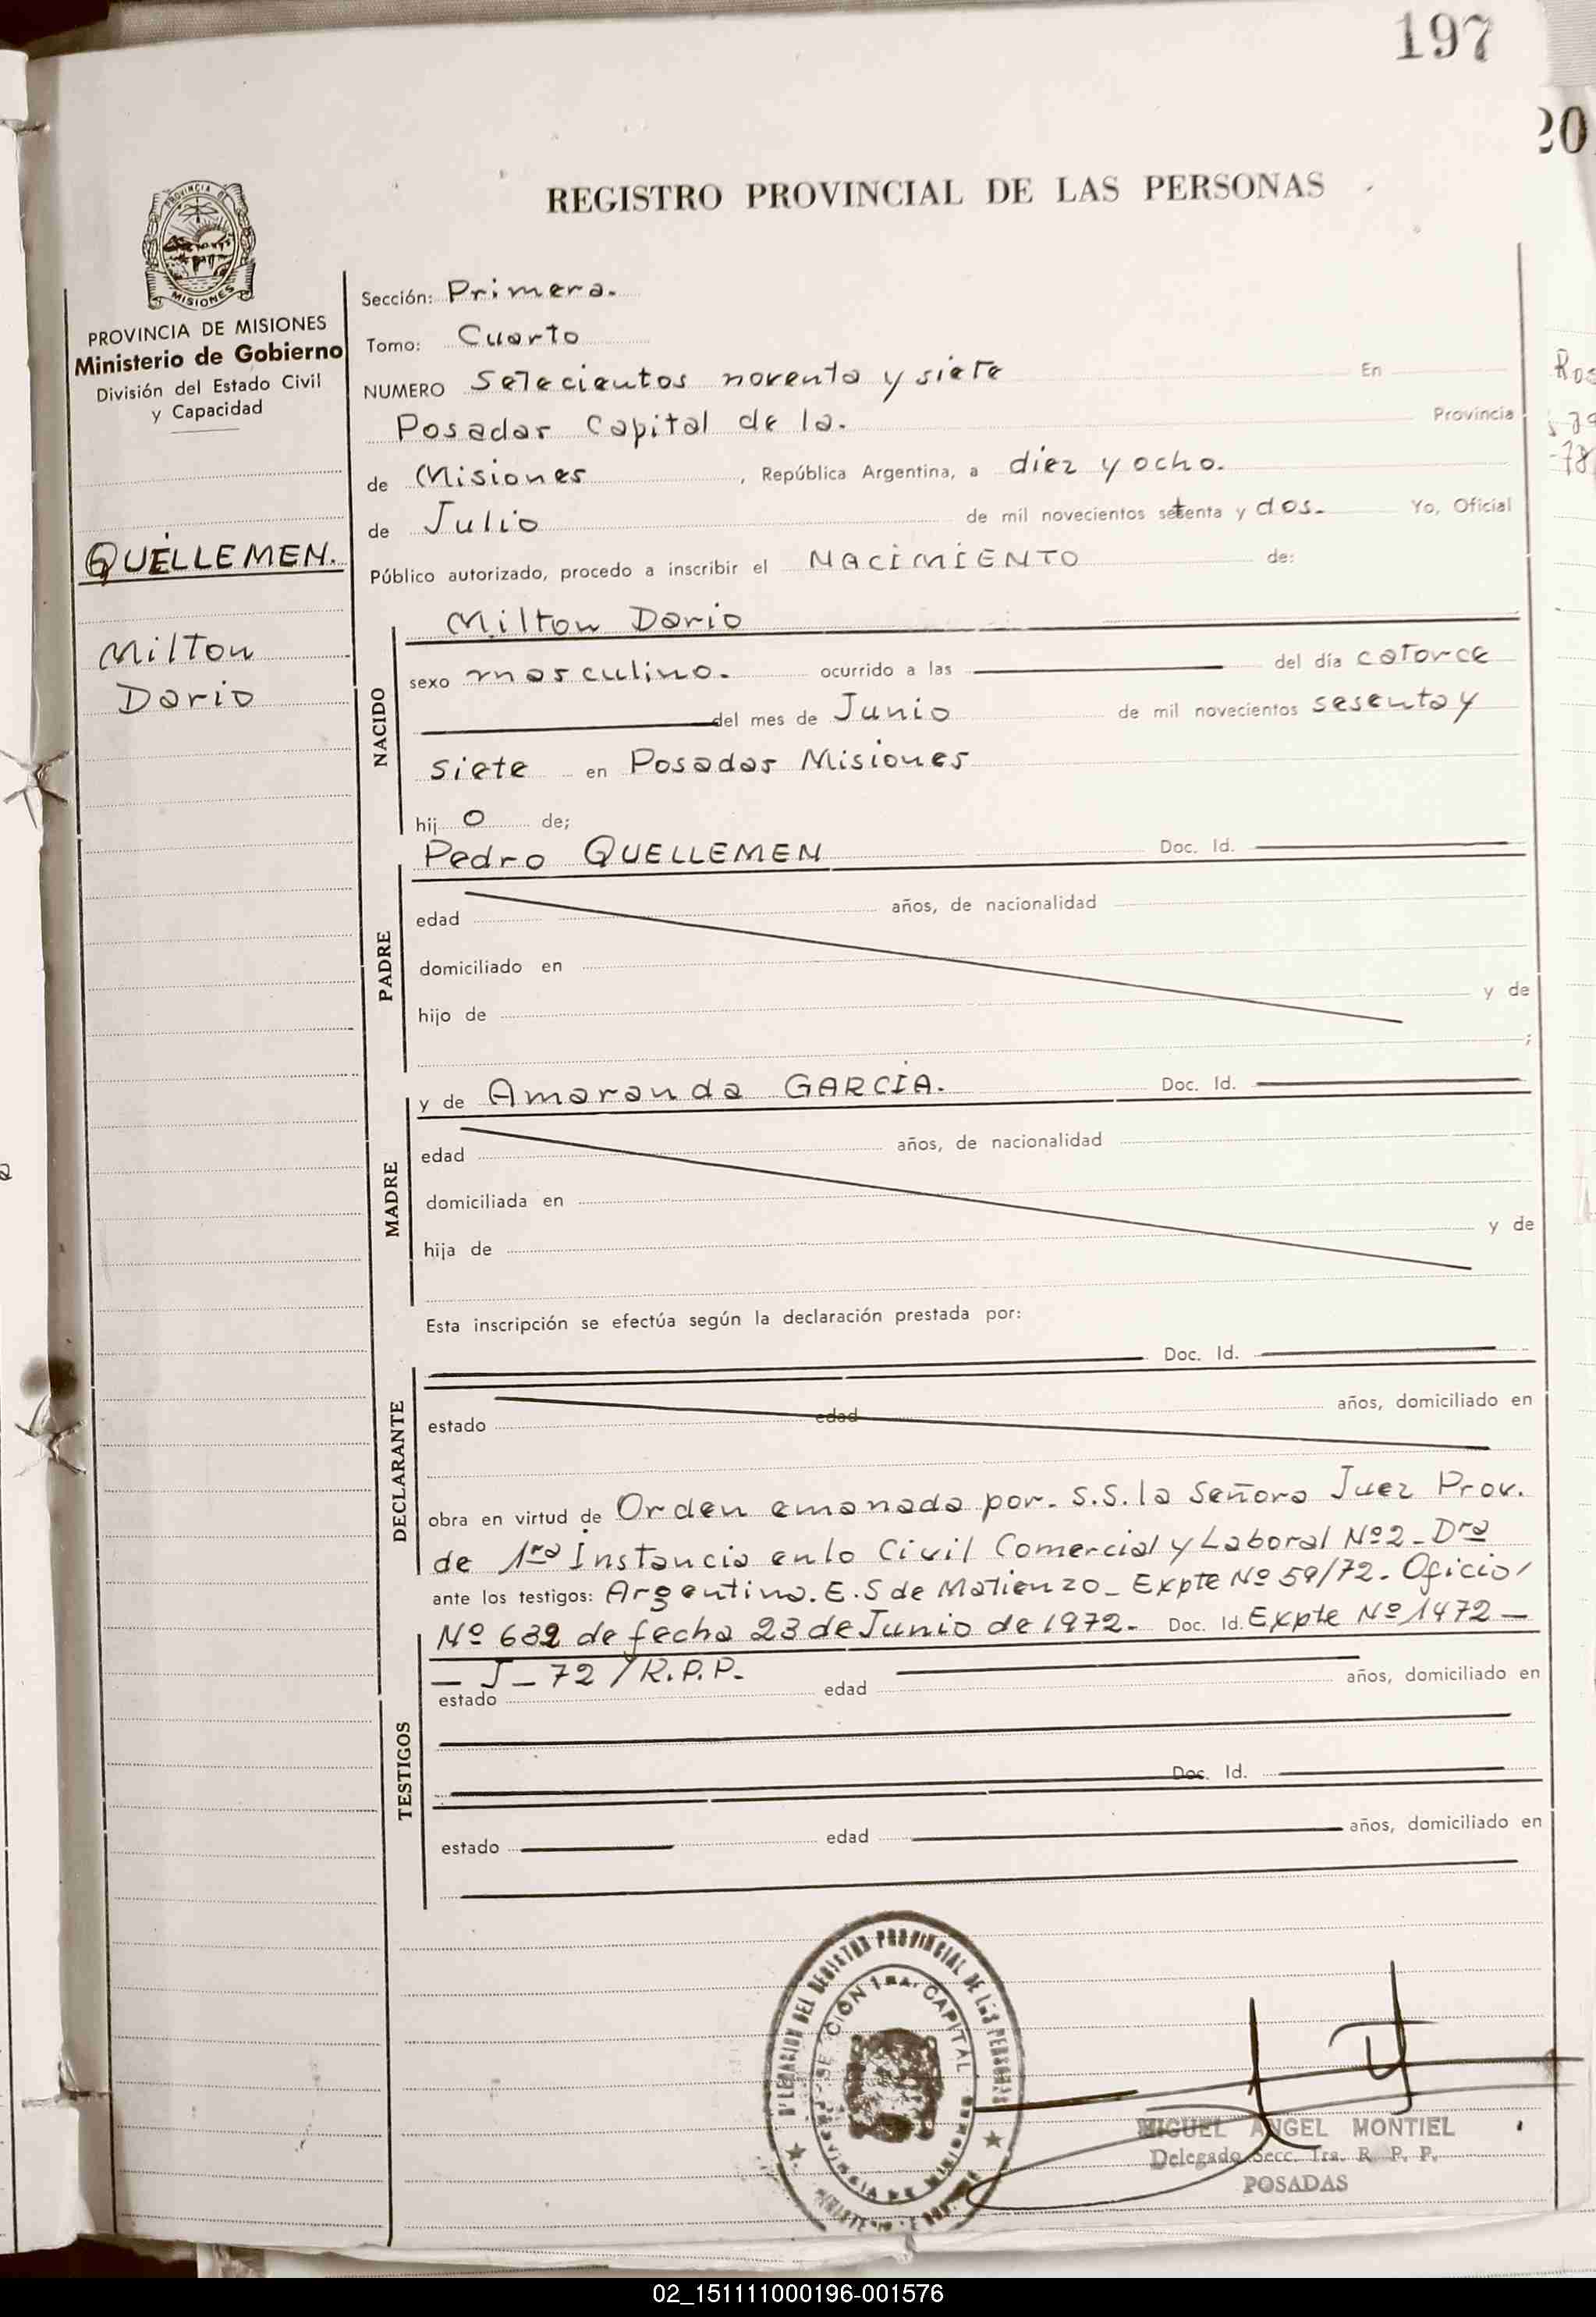 197
20
REGISTRO PROVINCIAL DE LAS PERSONAS
PROVINCIA DE
MISIONES
PROVINCIA DE MISIONES
Ministerio de Gobierno
División del Estado Civil
y Capacidad
QUELLEMEN.
Milton
Dario
Sección: Primera.
Tomo: Cuarto
NUMERO Setecientos noventa y siete En
Posadas Capital de la. Provincia
de Misiones , República Argentina, a diez y ocho.
de Julio de mil novecientos setenta y dos. Yo, Oficial
Público autorizado, procedo a inscribir el NACIMIENTO de:
NACIDO
Milton Dario
sexo masculino. ocurrido a las del día catorce
del mes de Junio de mil novecientos sesenta y
siete en Posadas Misiones
hij o de;
PADRE
Pedro QUELLEMEN Doc. Id.
edad años, de nacionalidad
domiciliado en
hijo de y de
;
MADRE
y de Amaranda GARCIA. Doc. Id.
edad años, de nacionalidad
domiciliada en
hija de y de
Esta inscripción se efectúa según la declaración prestada por:
Doc. Id.
DECLARANTE
estado edad años, domiciliado en
obra en virtud de Orden emanada por. S.S. la Señora Juez Prov.
de 1ra Instancia en lo Civil Comercial y Laboral Nº 2 - Dra
ante los testigos: Argentina. E. S de Matienzo - Expte Nº 59/72 - Oficio
Nº 632 de fecha 23 de Junio de 1972. Doc. Id. Expte Nº 1472 -
- J - 72 / R.P.P.
estado edad años, domiciliado en
TESTIGOS
Doc. Id.
estado edad años, domiciliado en
DELEGACION DEL REGISTRO PROVINCIAL DE LAS PERSONAS
CAPITAL
PROVINCIA DE MISIONES
MIGUEL ANGEL MONTIEL
Delegado Secc. 1ra. R. P. P.
POSADAS
02_151111000196-001576